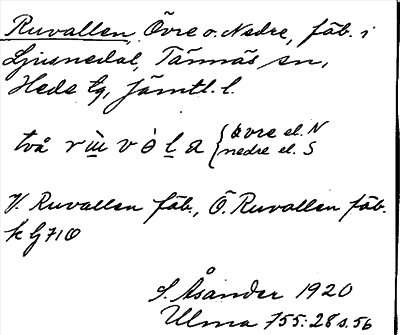 Ruvallen, Övre o. Nedre, fäb. i
Ljusnedal, Tännäs sn,
Hede tg, Jämtl. l.
två r ɯ̀ v ò l a { övre el. N
nedre el. S
V. Ruvallen fäb., Ö. Ruvallen fäb.
k G710
S. Åsander 1920
Ulma 755:28 s. 56